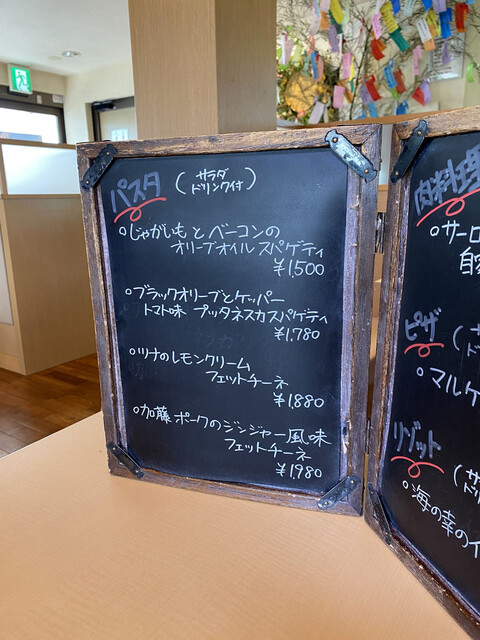 パスタ (サラダ ドリンク付)
○じゃがいもとベーコンの
オリーブオイルスパゲティ
¥1,500
○ブラックオリーブとケッパー
トマト味 プッタネスカスパゲティ
¥1,780
○ツナのレモンクリーム
フェットチーネ
¥1,880
○加藤ポークのジンジャー風味
フェットチーネ
¥1,980
肉料理
○サーロ
ピザ
○マルゲ
リゾット
○海の幸のイ